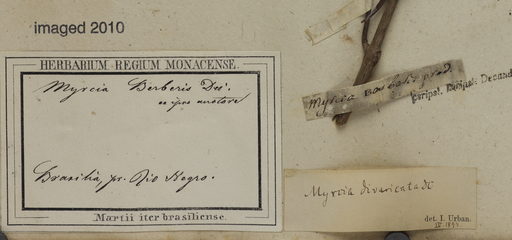 imaged 2010
HERBARIUM REGIUM MONACENSE.
Myrcia Berberis DeC.
ex ipso auctore
Brasilia, pr. Rio Negro.
Martii iter brasiliense.
Myrcia
Myrcia divaricata DC
det. I. Urban.
IV. 1894